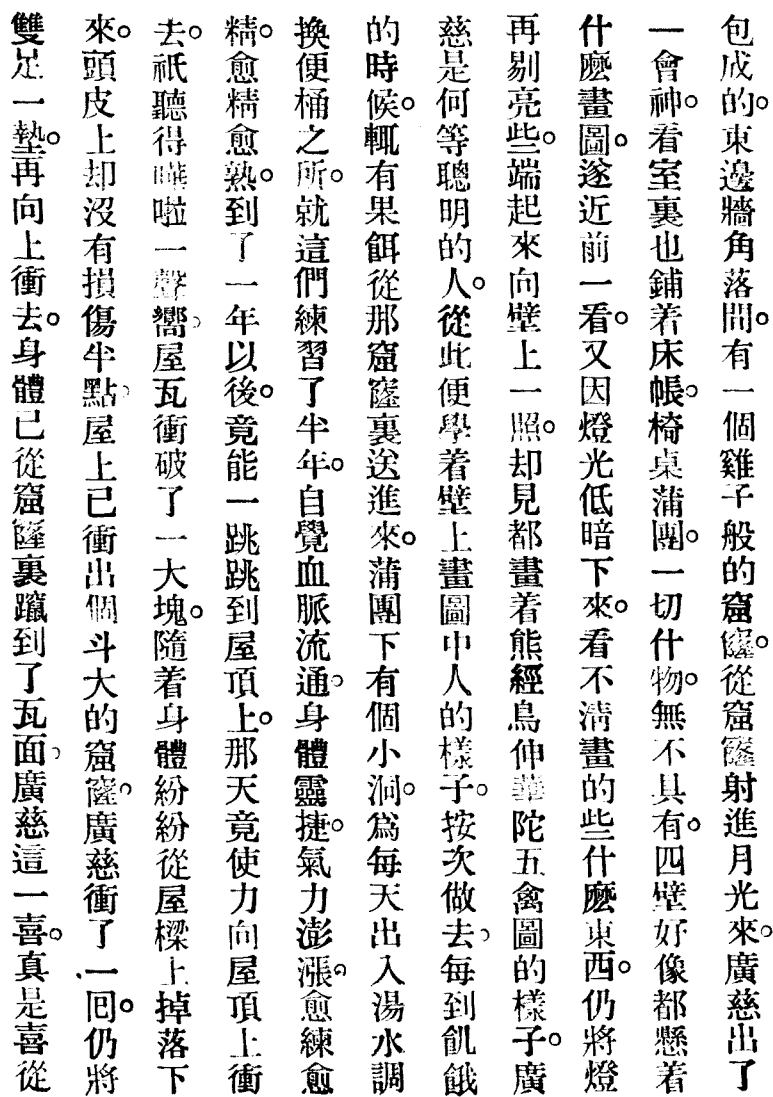 包成的。東邊牆角落間。有一個雞子般的窟窿。從窟窿射進月光來。廣慈出了
一會神。看室裏也鋪着床帳。椅桌蒲團。一切什物。無不具有。四壁好像都懸着
什麼畫圖。遂近前一看。又因燈光低暗下來。看不清畫的些什麼東西。仍將燈
再剔亮些。端起來向壁上一照。却見都畫着熊經鳥伸華陀五禽圖的樣子。廣
慈是何等聰明的人。從此便學着壁上畫圖中人的樣子。按次做去。每到飢餓
的時候。輒有果餌從那窟窿裏送進來。蒲團下有個小洞。爲每天出入湯水調
換便桶之所。就這們練習了半年。自覺血脈流通。身體靈捷。氣力澎漲。愈練愈
精。愈精愈熟。到了一年以後。竟能一跳跳到屋頂上。那天竟使力向屋頂上衝
去。祇聽得嘩啦一聲響。屋瓦衝破了一大塊。隨着身體紛紛從屋樑上掉落下
來。頭皮上却沒有損傷半點。屋上已衝出個斗大的窟窿。廣慈衝了一回。仍將
雙足一墊。再向上衝去。身體已從窟窿裏躥到了瓦面。廣慈這一喜。真是喜從